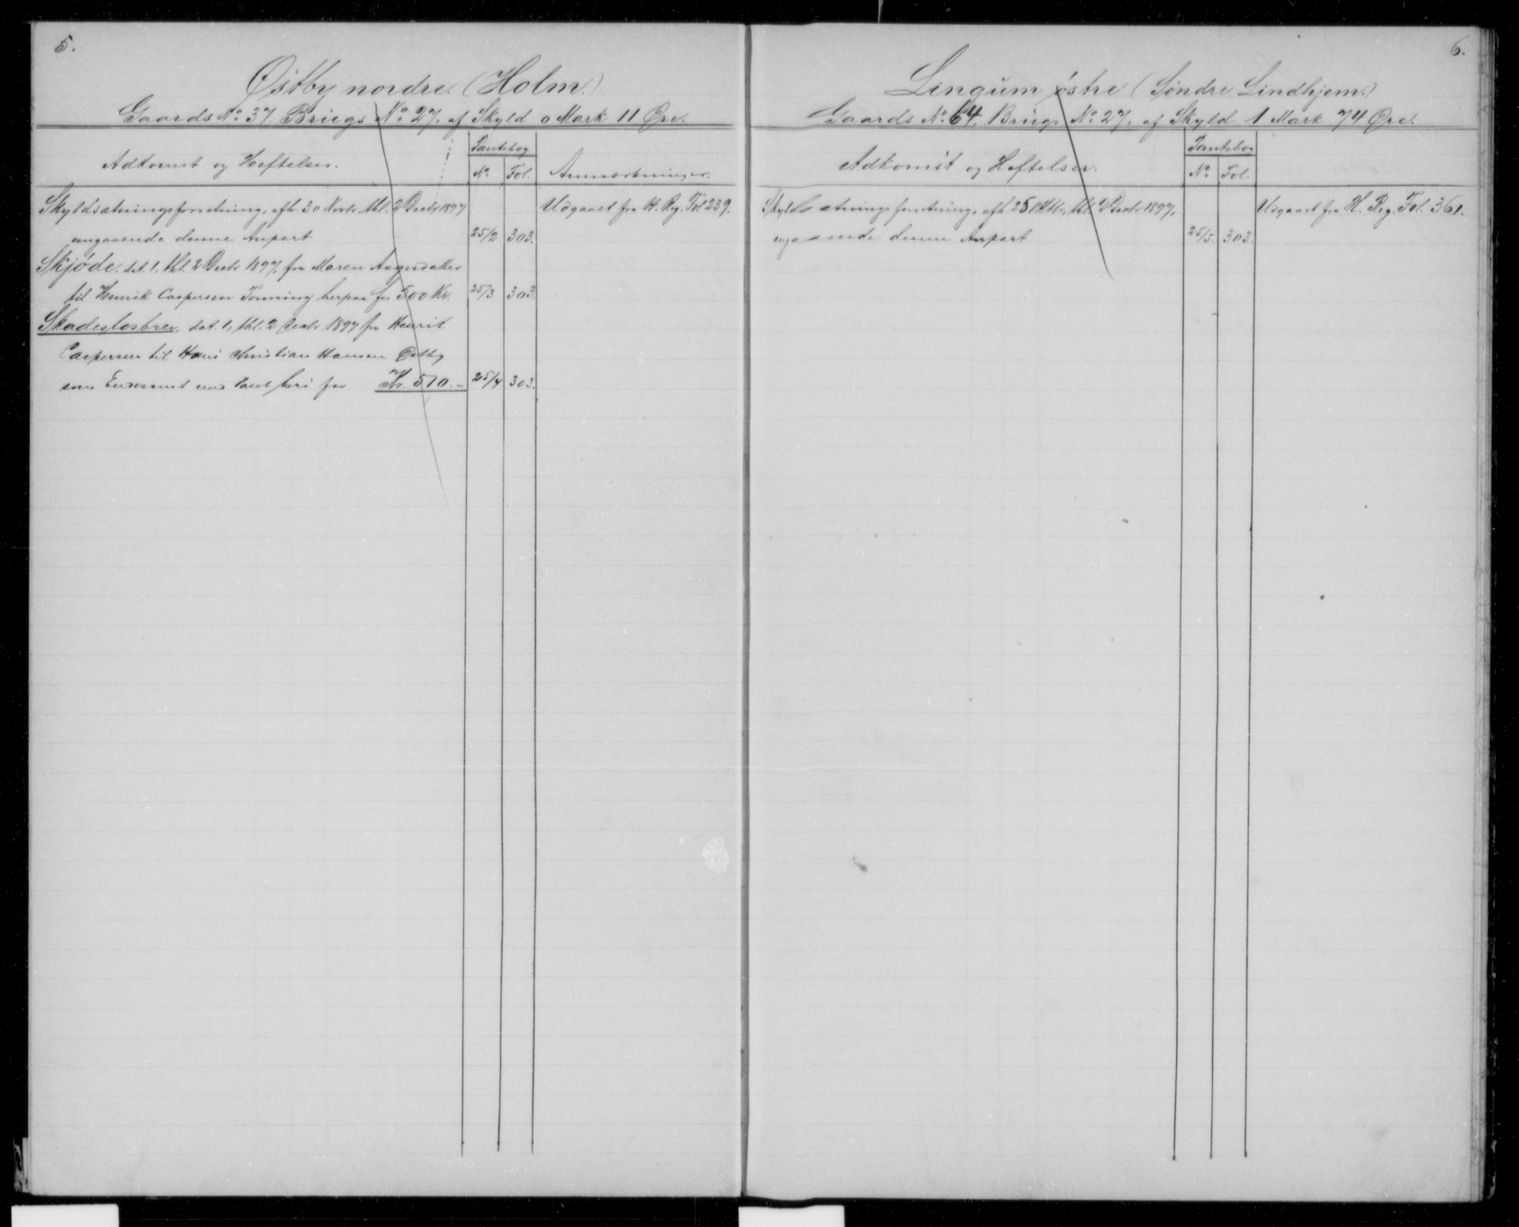 5.
Østby nordre. (Holm.)
Gaards No 37. Brugs No 27, af Skyld 0 Mark 11 Øre.
Adkomst og Heftelser.
Pantebog
No Fol.
Anmærkninger.
Skyldsætningsforretning, afh. 30 Novbr, thl. 2 Decbr 1897
angaaende denne Anpart
25/2 303.
Udgaaet fra H. Reg. Fol 239.
Skjøde, dat. 1, thl. 2 Decbr 1897, fra Maren
til Henrik Caspersen Tonning herpaa for 500 Kr.
25/3 303.
Skadesløsbrev, dat. 1, thl. 2 Decbr 1897 fra Henrik
Caspersen til Hans Christian Hansen Østby
med Pant heri for Kr. 510.-
25/4 303.
6.
Lingum østre (Søndre Lindhjem.)
Gaards No 64, Brugs No 27, af Skyld 1 Mark 74 Øre.
Adkomst og Heftelser.
Pantebog
No Fol.
Skyldsætningsforretning, afh. 25 Oktbr, thl. 2 Decbr 1897,
angaaende denne Anpart
25/5. 303.
Udgaaet fra H. Reg. Fol. 361.